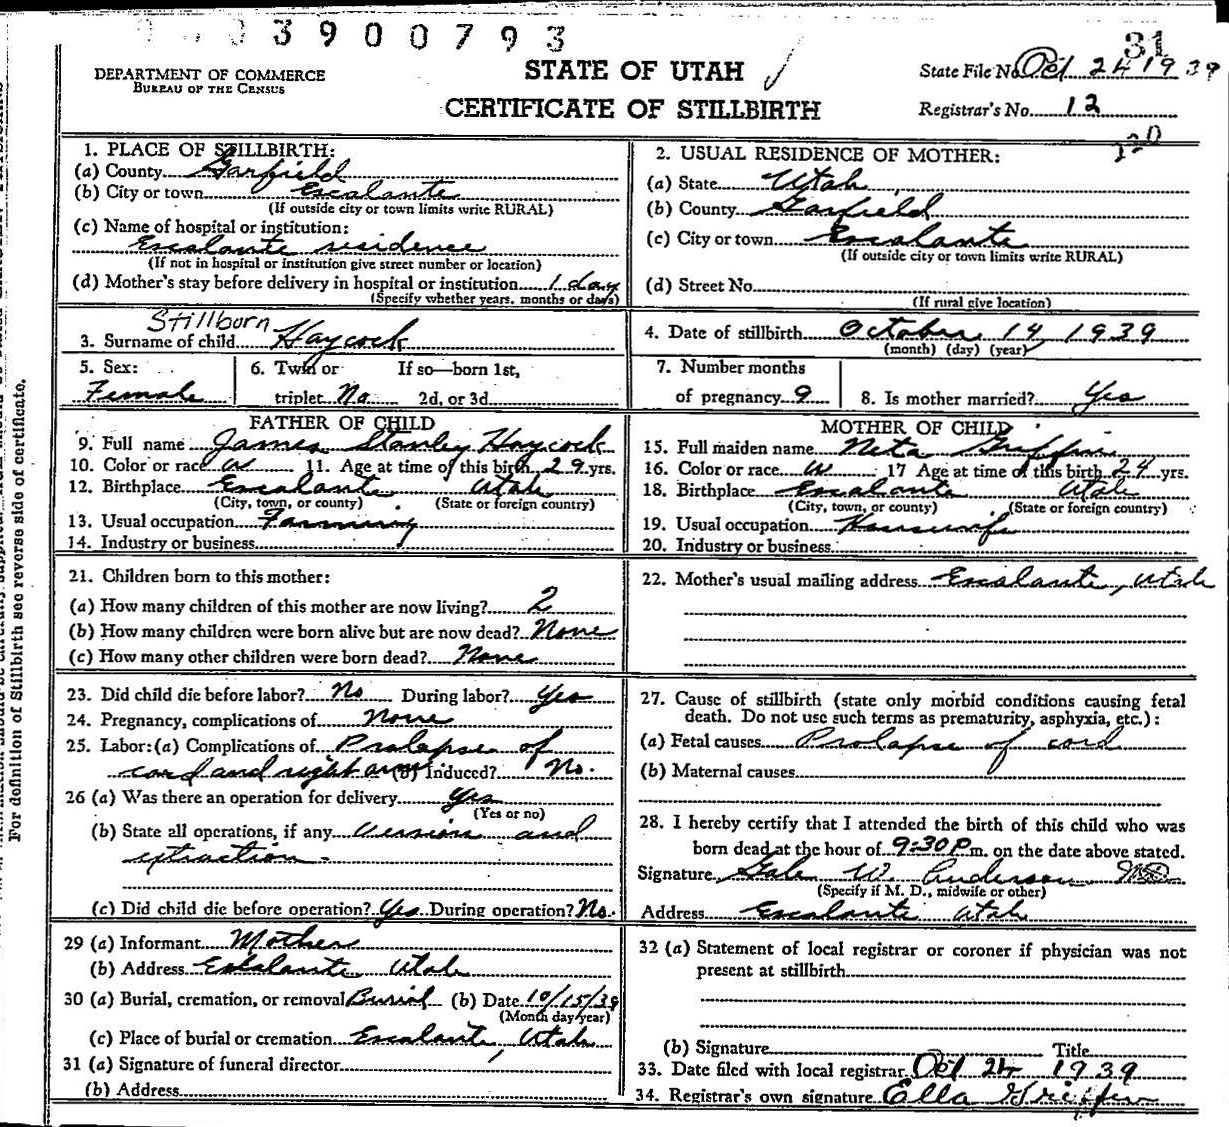 3900793
31
DEPARTMENT OF COMMERCE
BUREAU OF THE CENSUS
STATE OF UTAH
CERTIFICATE OF STILLBIRTH
State File No. Oct 24 1939
Registrar's No. 12
120
1. PLACE OF STILLBIRTH:
(a) County Garfield
(b) City or town Escalante
(If outside city or town limits write RURAL)
(c) Name of hospital or institution:
Escalante residence
(If not in hospital or institution give street number or location)
(d) Mother's stay before delivery in hospital or institution 1 day
(Specify whether years, months or days)
2. USUAL RESIDENCE OF MOTHER:
(a) State Utah
(b) County Garfield
(c) City or town Escalante
(If outside city or town limits write RURAL)
(d) Street No.
(If rural give location)
Stillborn
3. Surname of child Haycock
4. Date of stillbirth October 14, 1939
(month) (day) (year)
5. Sex:
Female
6. Twin or If so—born 1st,
triplet No 2d, or 3d
7. Number months
of pregnancy 9
8. Is mother married? Yes
FATHER OF CHILD
9. Full name James Stanley Haycock
10. Color or race W 11. Age at time of this birth 29 yrs.
12. Birthplace Escalante Utah
(City, town, or county) (State or foreign country)
13. Usual occupation Farming
14. Industry or business
MOTHER OF CHILD
15. Full maiden name Neta Griffin
16. Color or race W 17 Age at time of this birth 24 yrs.
18. Birthplace Escalante Utah
(City, town, or county) (State or foreign country)
19. Usual occupation Housewife
20. Industry or business
21. Children born to this mother:
(a) How many children of this mother are now living? 2
(b) How many children were born alive but are now dead? None
(c) How many other children were born dead? None
22. Mother's usual mailing address Escalante, Utah
23. Did child die before labor? No During labor? Yes
24. Pregnancy, complications of None
25. Labor: (a) Complications of Prolapse of
cord and right arm (b) Induced? No.
26 (a) Was there an operation for delivery Yes
(Yes or no)
(b) State all operations, if any Version and
extraction -
(c) Did child die before operation? Yes During operation? No.
27. Cause of stillbirth (state only morbid conditions causing fetal
death. Do not use such terms as prematurity, asphyxia, etc.):
(a) Fetal causes Prolapse of cord
(b) Maternal causes
28. I hereby certify that I attended the birth of this child who was
born dead at the hour of 9:30 P.m. on the date above stated.
Signature Gale W. Anderson MD
(Specify if M. D., midwife or other)
Address Escalante Utah
29 (a) Informant Mother
(b) Address Escalante Utah
30 (a) Burial, cremation, or removal Burial (b) Date 10/15/39
(Month day year)
(c) Place of burial or cremation Escalante, Utah
31 (a) Signature of funeral director
(b) Address
32 (a) Statement of local registrar or coroner if physician was not
present at stillbirth
(b) Signature Title
33. Date filed with local registrar Oct 24 1939
34. Registrar's own signature Ella Griffin
For definition of Stillbirth see reverse side of certificate.